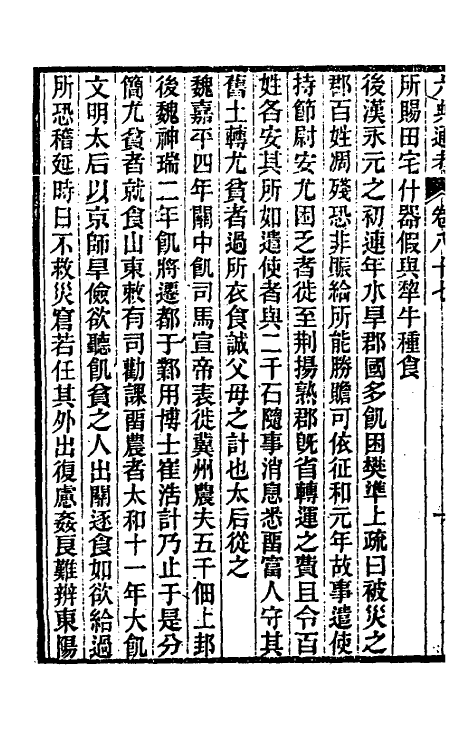 六典通考 卷八十七
所賜田宅什器假與犂牛種食
後漢永元之初連年水旱郡國多飢困樊準上疏曰被災之
郡百姓凋殘恐非賑給所能勝贍可依征和元年故事遣使
持節尉安尤困乏者徙至荆揚熟郡旣省轉運之費且令百
姓各安其所如遣使者與二千石隨事消息悉畱富人守其
舊土轉尤貧者過所衣食誠父母之計也太后從之
魏嘉平四年關中飢司馬宣帝表徙冀州農夫五千佃上邽
後魏神瑞二年飢將遷都于鄴用博士崔浩計乃止于是分
簡尤貧者就食山東敕有司勸課畱農者太和十一年大飢
文明太后以京師旱儉欲聽飢貧之人出關逐食如欲給過
所恐稽延時日不救災窘若任其外出復慮姦良難辨東陽